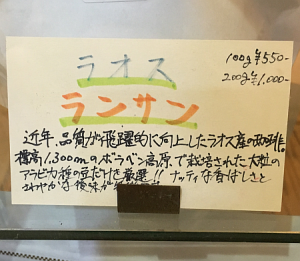 100g ¥550-
200g ¥1,000-
ラオス
ランサン
近年、品質が飛躍的に向上したラオス産の珈琲。
標高1,300mのボラベン高原で栽培された大粒の
アラビカ種の豆だけを厳選!! ナッティな香ばしさと
さわやかな後味が